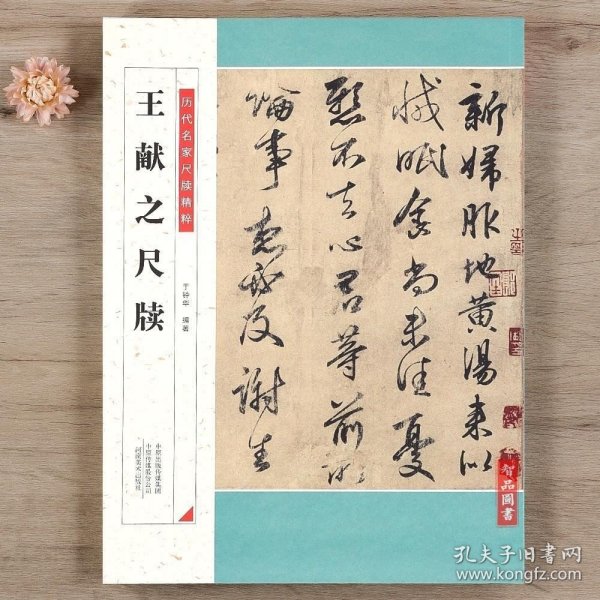 历代名家尺牍精粹
王献之尺牍
于钟华 编著
中原出版传媒集团
中原传媒股份公司
河南美术出版社
新婦服地黄湯来似
減眠食尚未佳憂
懸不去心君等前所
論事想及謝生
智品圖書
孔夫子旧书网
www.kongfz.com